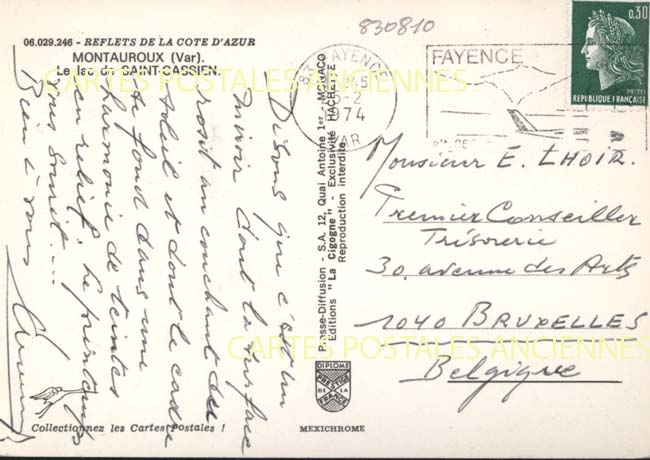 830810
06.029.246 - REFLETS DE LA COTE D'AZUR
MONTAUROUX (Var).
Le lac de SAINT-CASSIEN.
CARTES POSTALES ANCIENNES
Disons que c'est un
miroir dont la surface
rosit au couchant du
soleil et dont le cadre
se fond dans une
harmonie de teintes
en relief. Le printemps
vous sourit...
Bien à vous
Presse-Diffusion - S.A. 12, Quai Antoine 1er - MONACO
Editions "La Cigogne" - Exclusivité HACHETTE
Reproduction interdite
83 FAYENCE
-2
1974
VAR
FAYENCE
0.30
POSTES
REPUBLIQUE FRANÇAISE
Monsieur E. LHOIR.
Premier Conseiller
Trésorerie
30, avenue des Arts
1040 BRUXELLES
Belgique
CARTES POSTALES ANCIENNES
DIPLOME
PRESTIGE
DE LA
FRANCE
Collectionnez les Cartes Postales !
MEXICHROME